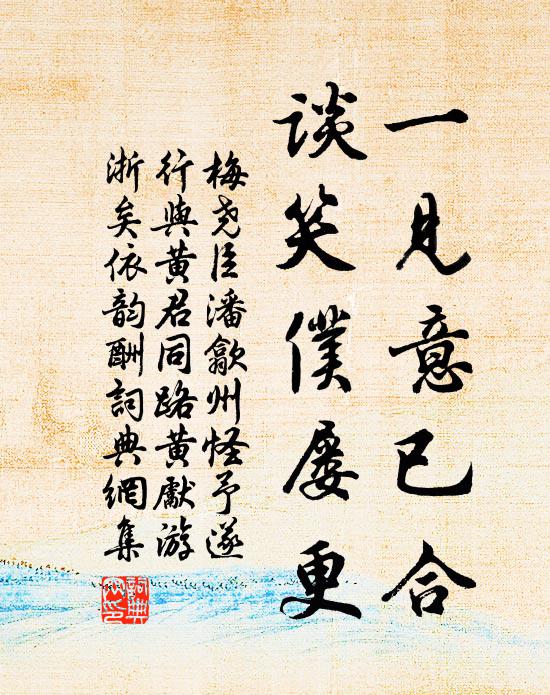 一见意已合
谈笑仆屡更
梅尧臣潘歙州怪予遂
行与黄君同路黄献游
浙矣依韵酬词典网集